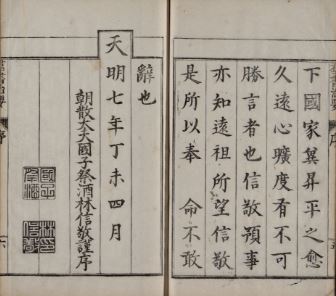 下國家巽昇平之愈
久遠心曠度有不可
勝言者也信敬預事
亦知遠祖所望信敬
是所以奉　命不敢
辭也
天明七年丁未四月
朝散大夫國子祭酒林信敬謹序
序